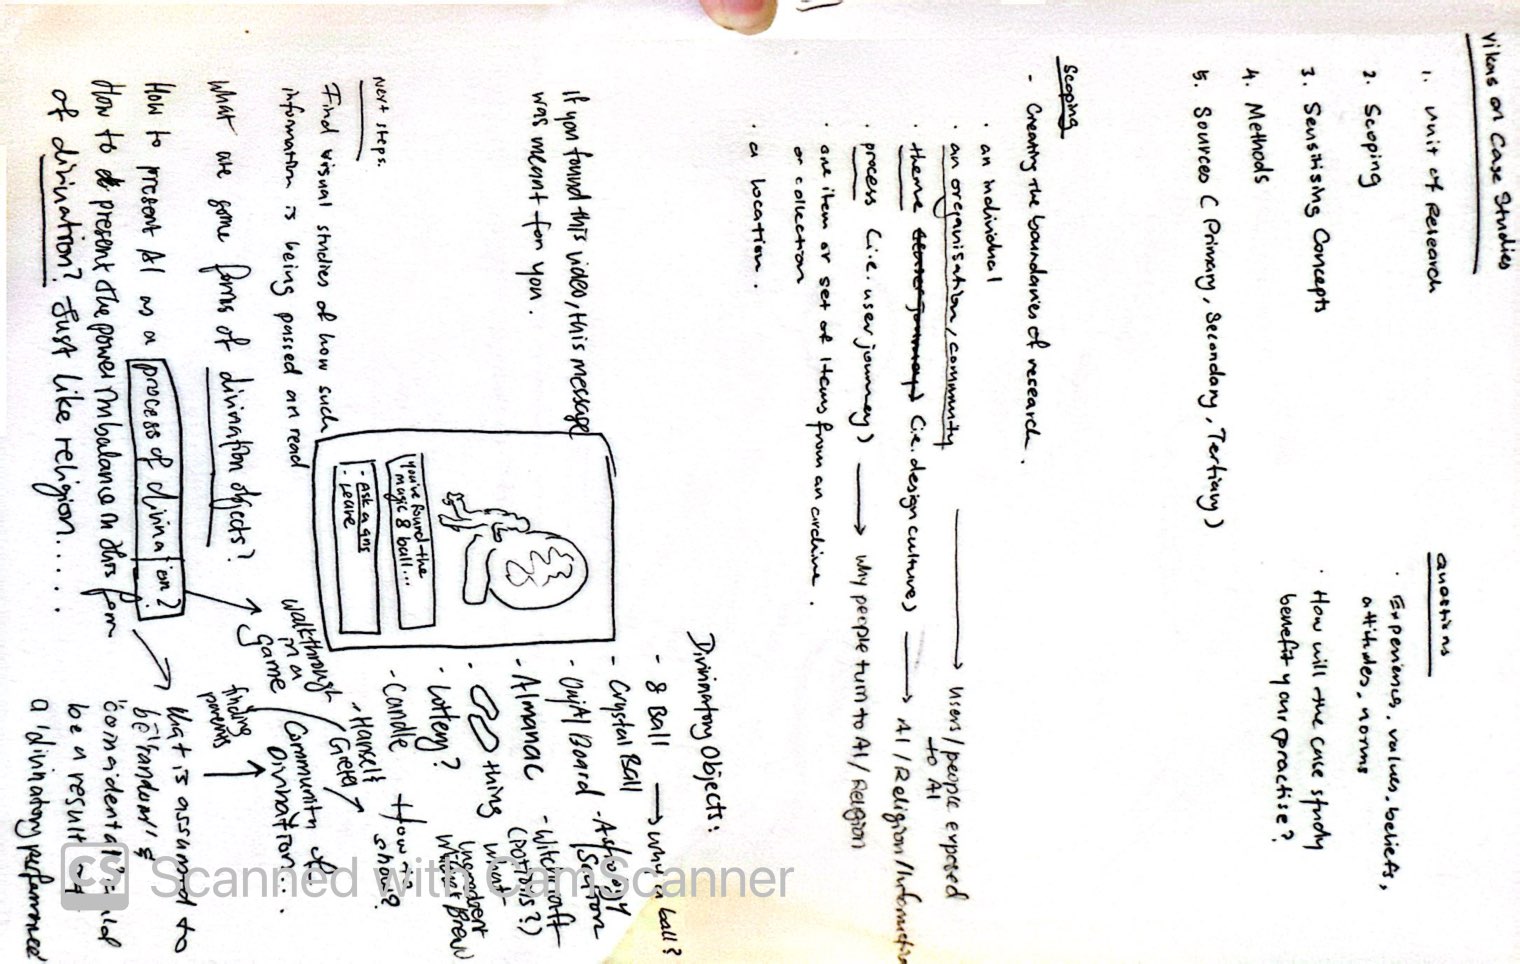 Vikas on Case Studies
1. Unit of Research
2. Scoping
3. Sensitising Concepts
4. Methods
5. Sources (Primary, Secondary, Tertiary)
Questions
· Experience, values, beliefs,
attitudes, norms
· How will the case study
benefit your practise?
Scoping
- Creating the boundaries of research.
· an individual
· an organisation, community → Users/people exposed
to AI
· theme (i.e. design cultures) → AI/Religion/
· process (i.e. user journey) → Why people turn to AI/Religion
· one item or set of items from an archive
or collection
· a location.
If you found this video, this message
was meant for you.
You've found the
magic 8 ball...
· Ask a qns
· Leave
Divinatory Objects:
- 8 Ball → Why a ball?
- Crystal Ball
- Astrology
- Almanac
- Witchcraft
(Potions?)
what
ingredient
thing
· Lottery?
- Candle
How is
show?
- Hansel &
Gretel
Next steps.
Find visual studies of how such
information is being passed on read
What are some forms of divination objects?
walkthrough
in a
game
Community of
Divination...
finding
patterns
How to present AI as a process of divination?
How to present the power imbalance in this form
of divination? Just like religion.....
What is assumed to
be 'random' &
'coincidental'
be a result of
a 'divinatory performance
CS Scanned with CamScanner